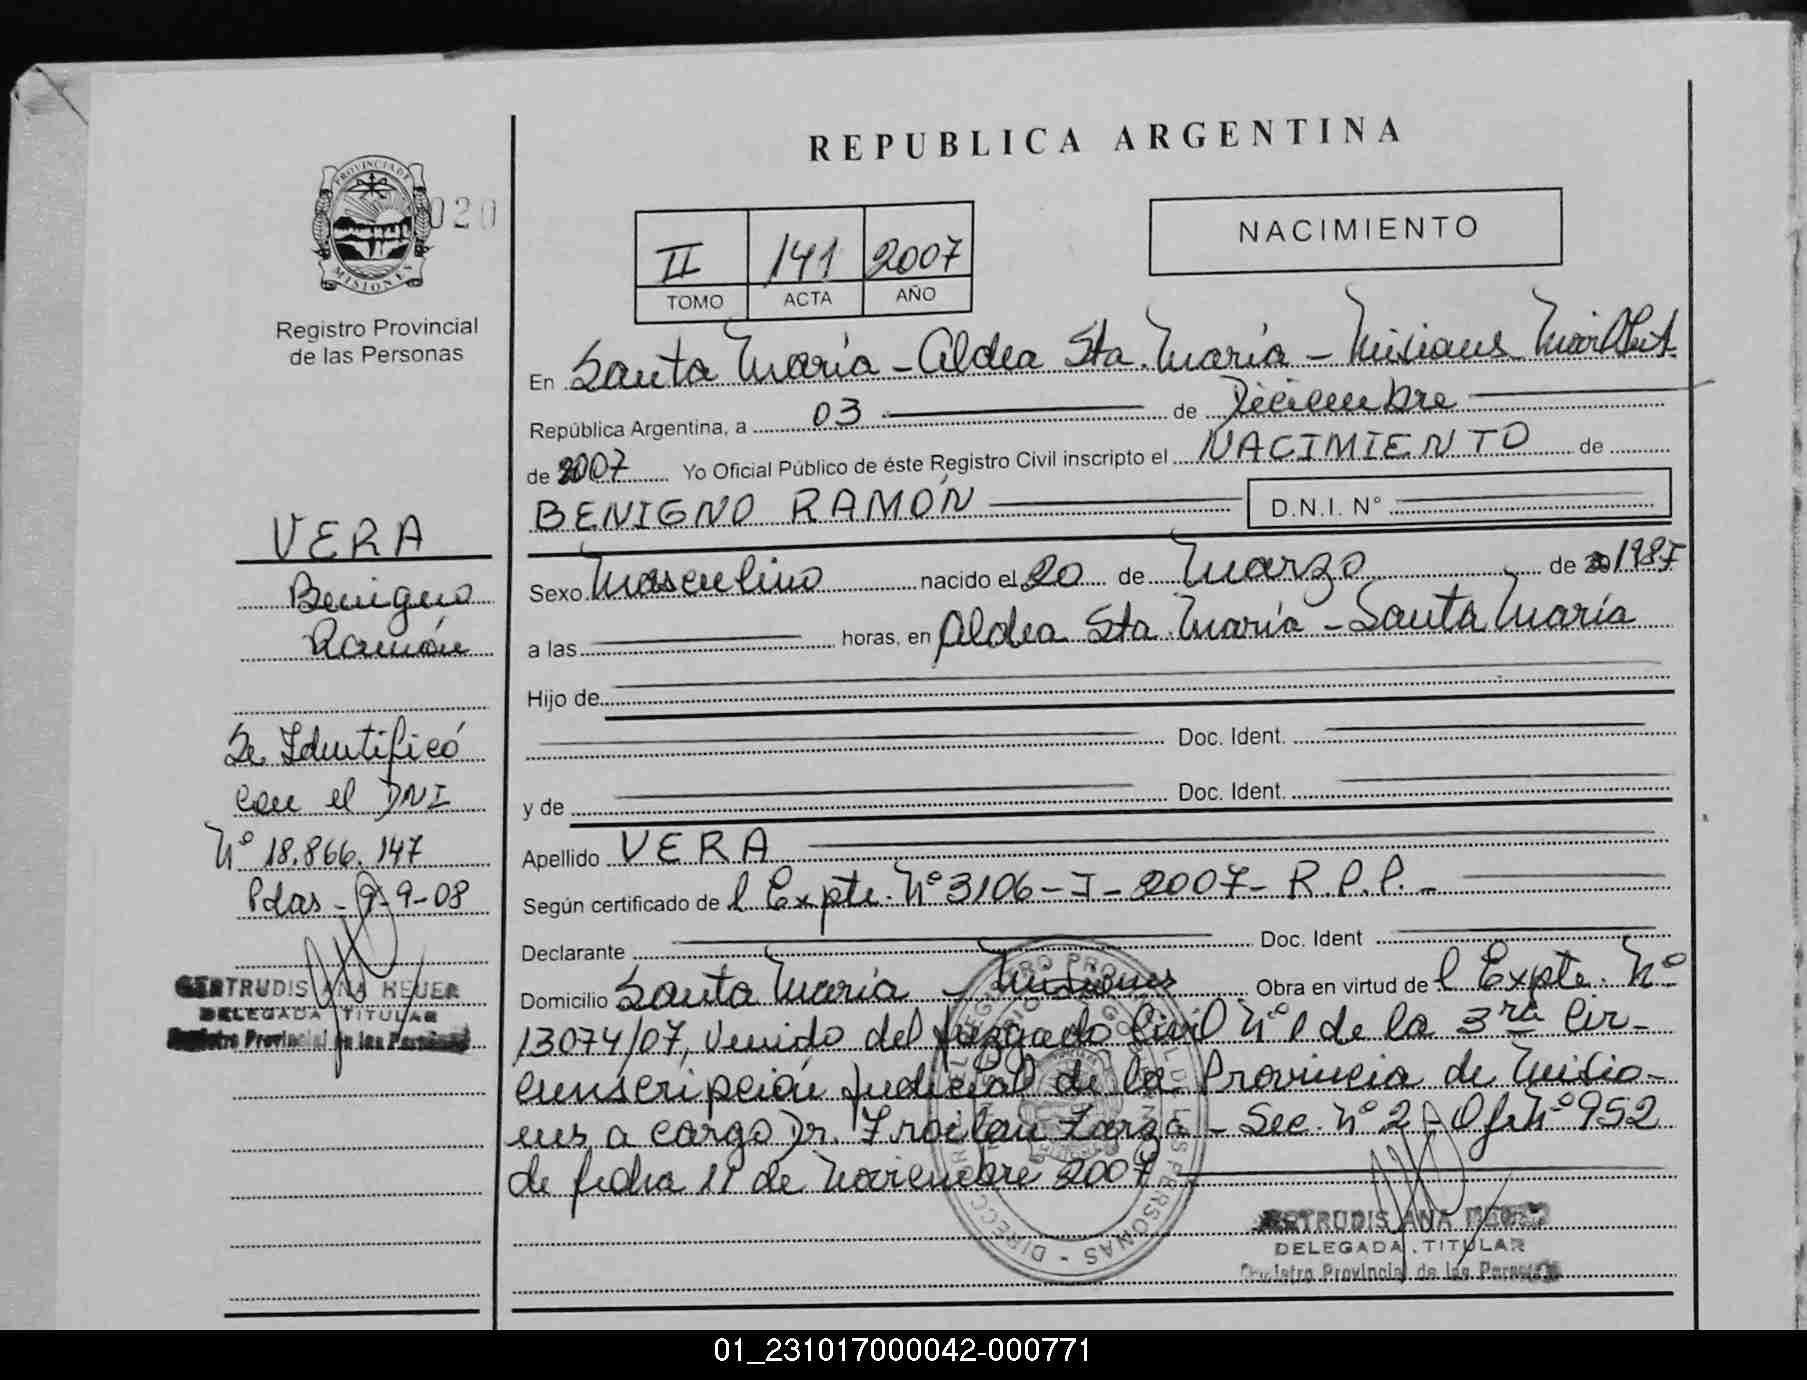 REPUBLICA ARGENTINA
PROVINCIA DE MISIONES
020
Registro Provincial
de las Personas
II 141 2007
TOMO ACTA AÑO
NACIMIENTO
En Santa María - Aldea Sta. María - Misiones
República Argentina, a 03 de Diciembre
de 2007 Yo Oficial Público de éste Registro Civil inscripto el NACIMIENTO de
BENIGNO RAMÓN D.N.I. N°
Sexo Masculino nacido el 20 de Marzo de 1987
a las horas, en Aldea Sta. María - Santa María
Hijo de
Doc. Ident.
y de Doc. Ident.
Apellido VERA
Según certificado de l Expte. N° 3106-I-2007- R.P.P.-
Declarante Doc. Ident
Domicilio Santa María - Misiones Obra en virtud de l Expte. N°
13074/07, Venido del Juzgado Civil N° 1 de la 3ra Cir-
cunscripción Judicial de la Provincia de Misio-
nes a cargo Dr. Froilan Zarza - Sec. N° 2 - Of. N° 952
de fecha 11 de Noviembre 2007
GERTRUDIS ANA HEUER
DELEGADA TITULAR
Registro Provincial de las Personas
VERA
Benigno
Ramón
Se Identificó
con el DNI
N° 18.866.147
Pdas - 9-9-08
GERTRUDIS ANA HEUER
DELEGADA TITULAR
Registro Provincial de las Personas
01_231017000042-000771